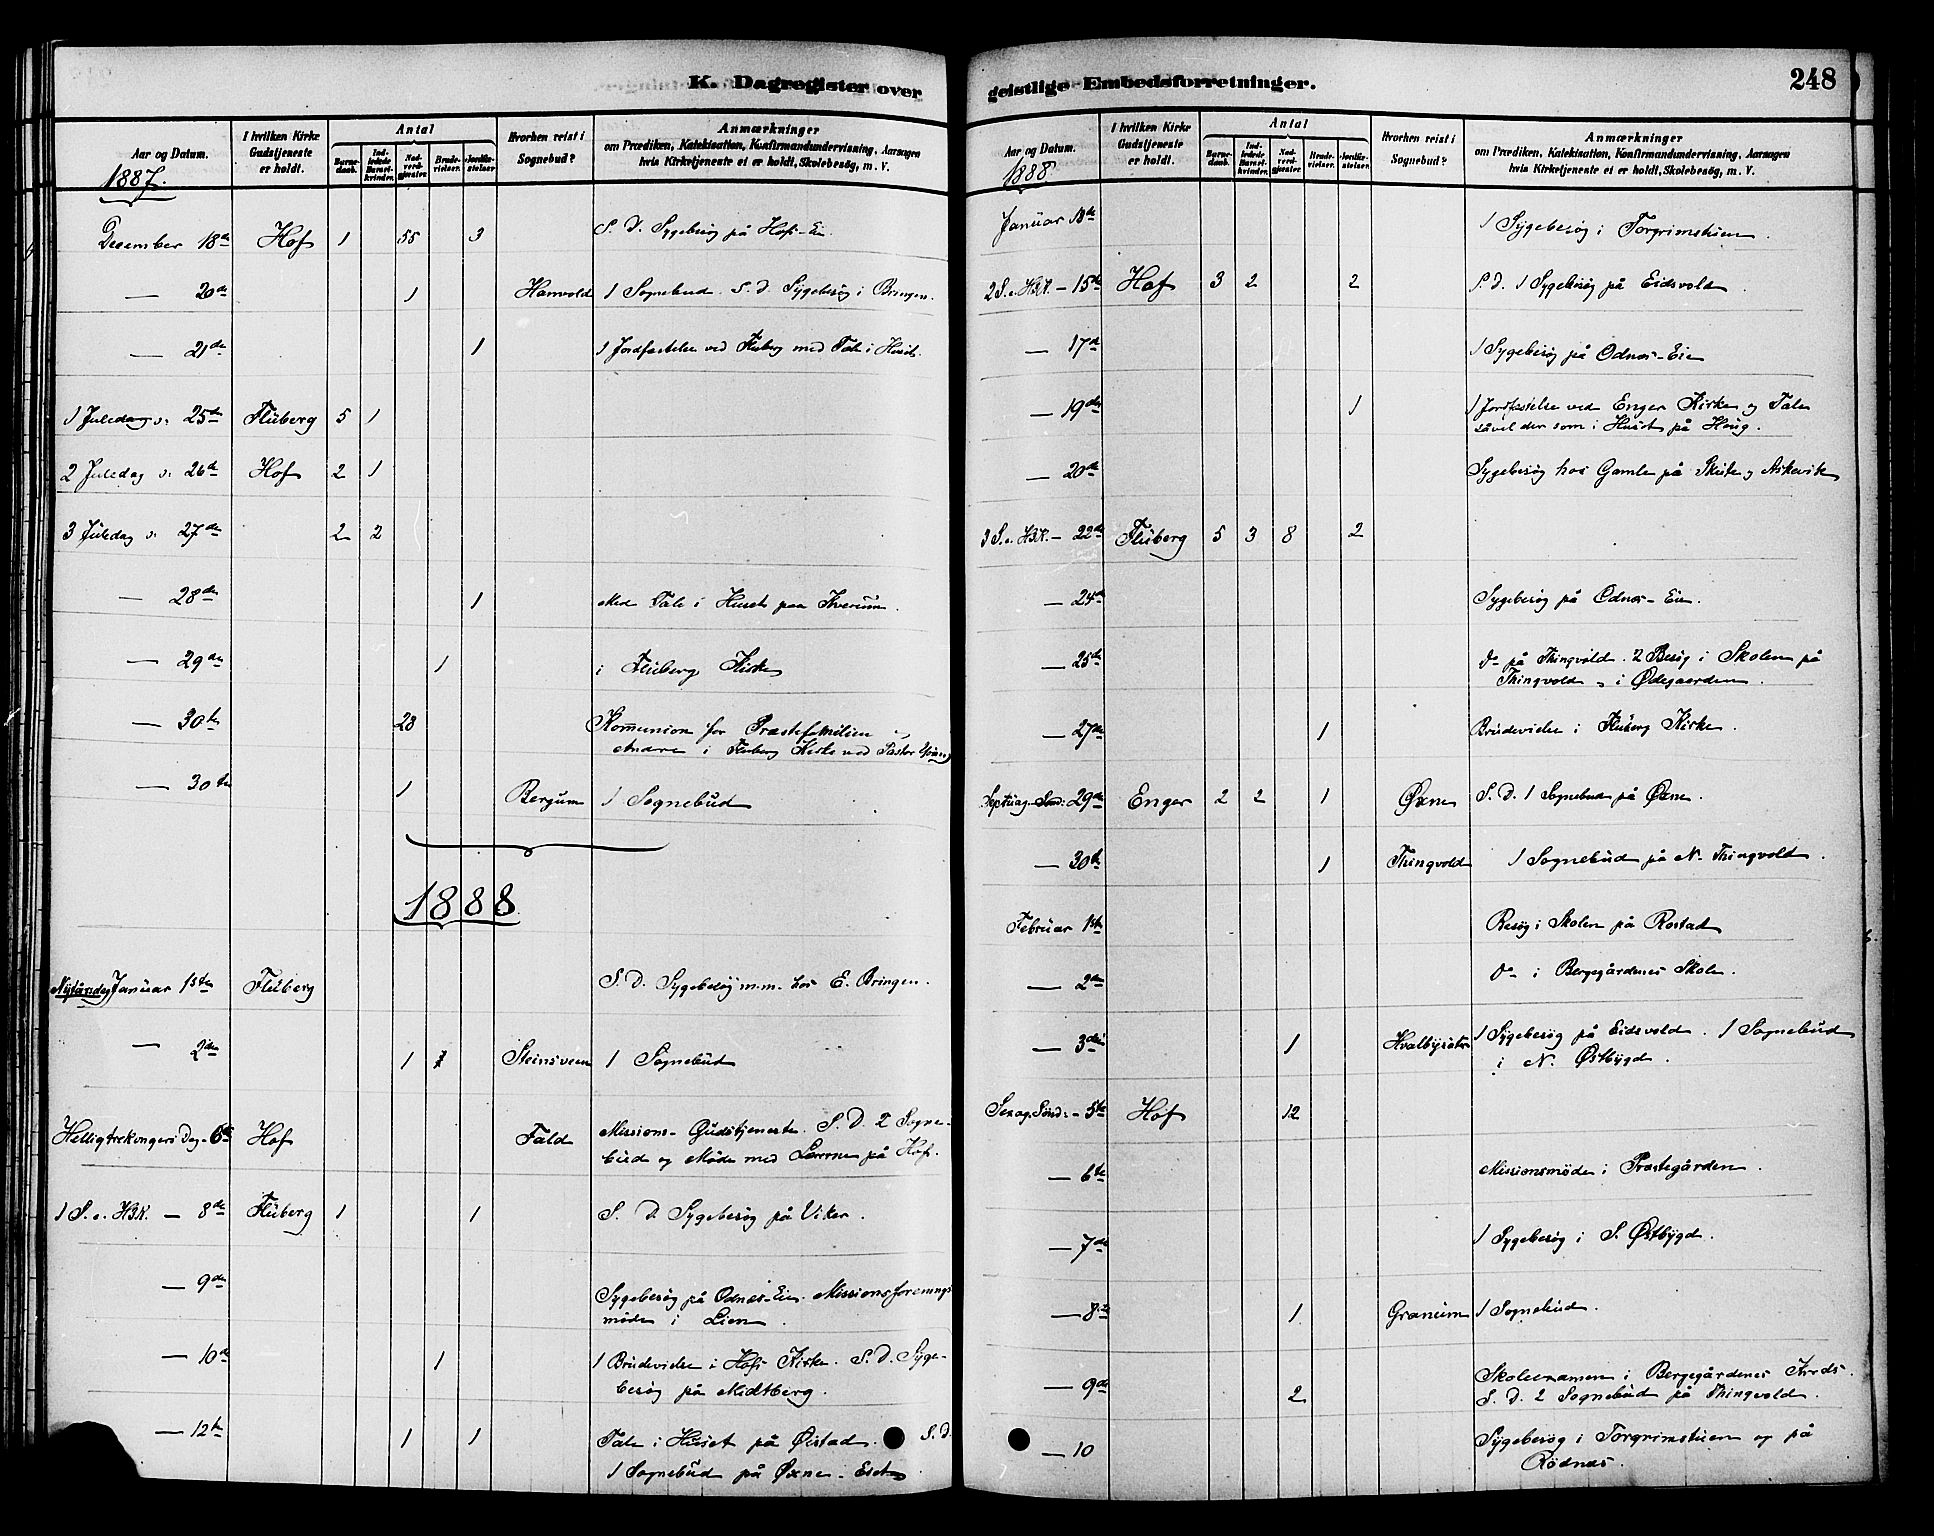 K. Dagregister over
Aar og Datum.
I hvilken Kirke Gudstjeneste er holdt.
Antal
Barnedaab.
Indledede Barselkvinder.
Nadverdgjester.
Brudevielser.
Jordfæstelser.
Hvorhen reist i Sognebud?
Anmærkninger
om Prædiken, Katekisation, Konfirmandundervisning, Aarsagen
hvis Kirketjeneste ei er holdt, Skolebesøg, m. V.
1887.
December 18de Hof 1 55 3 S. D. Sygebesøg på Hofs-Eie.
— 20de 1 Hamvold 1 Sognebud. S. D. Sygebesøg i Bringen.
— 21de 1 1 Jordfæstelse ved Fluberg med Tale i Huset.
1 Juledag d. 25de Fluberg 5 1
2 Juledag d. 26de Hof 2 1
3 Juledag d. 27de 2 2
— 28de 1 Med Tale i Huset paa Kverum.
— 29de 1 i Fluberg Kirke
— 30te 23 Kommunion for Præstefamilien
Andre i Fluberg Kirke ved Pastor
— 30te 1 Bergum 1 Sognebud
1888
Nytårsdag Januar 1ste Fluberg S. D. Sygebesøg m.m. hos E. Bringen.
— 2den 1 Steinsveen 1 Sognebud
Helligtrekongers Dag - 6te Hof Fald Missions-Gudstjeneste. S. D. 2 Sogne-
bud og Møde med Lærerne på Hof.
1 S. e. H3K. — 8de Fluberg 1 1 S. D. Sygebesøg på Viker.
— 9de Sygebesøg på Odnæs-Eie. Missionsforenings
møde i Lien.
— 10de 1 1 Brudevielse i Hofs Kirke. S. D. Syge-
besøg på Midtberg.
— 12te 1 1 Tale i Huset på Øistad. S. D.
1 Sognebud på Øxne-Eiet
geistlige Embedsforretninger.
248
Aar og Datum.
I hvilken Kirke Gudstjeneste er holdt.
Antal
Barnedaab.
Indledede Barselkvinder.
Nadverdgjester.
Brudevielser.
Jordfæstelser.
Hvorhen reist i Sognebud?
Anmærkninger
om Prædiken, Katekisation, Konfirmandundervisning, Aarsagen
hvis Kirketjeneste ei er holdt, Skolebesøg, m. V.
1888
Januar 1 Sygebesøg i Torgrimstuen.
2 S. e. H3K. — 15de Hof 3 2 2 S. D. 1 Sygebesøg på Eidsvold.
— 17de 1 Sygebesøg på Odnæs-Eie
— 19de 1 1 Jordfæstelse ved Enger Kirke og Tale
såvel der som i Huset på Haug.
— 20de Sygebesøg hos Gamle på Skute og Askevik
3 S. e. H3K. — 22de Fluberg 5 3 8 2
— 24de Sygebesøg på Odnæs-Eie.
— 25de do på Thingvold. 2 Besøg i Skolen på
Thingvold og i Ødegaarden.
— 27de 1 Brudevielse i Fluberg Kirke.
Septuag. Sønd: 29de Enger 2 2 1 Øxne S. D. 1 Sognebud på Øxne.
— 30te 1 Thingvold 1 Sognebud på N. Thingvold.
Februar 1ste Besøg i Skolen på Rostad
— 2den do i Bergegårdenes Skole.
— 3die 1 1 Sygebesøg på Eidsvold. 1 Sognebud
i N. Østbygd.
Sexag. Sønd: - 5te Hof 12
— 6te Missionsmøde i Præstegården.
— 7de 1 Sygebesøg i S. Østbygd.
— 8de 1 Granum 1 Sognebud.
— 9de 2 Skoleexamen i Bergegårdenes Krds.
S. D. 2 Sognebud på Thingvold.
— 10 Sygebesøg i Torgrimstuen og på
Rødnæs.